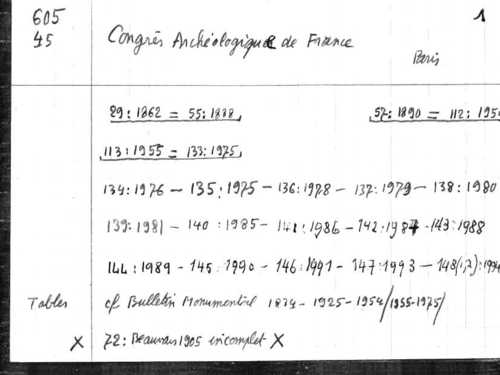 605 1
45 Congrès Archéologique de France
Paris
29:1862 = 55:1888, 57:1890 = 112:195
113:1955 = 133:1975,
134:1976 – 135:1975 – 136:1978 – 137:1979 – 138:1980
139:1981 – 140:1985 – 141:1986 – 142:1987 – 143:1988
144:1989 – 145:1990 – 146:1991 – 147:1993 – 148(1,2):1994
Tables cf Bulletin Monumental 1834 – 1925 – 1954/1955-1975/
X 72: Beauvais 1905 incomplet X